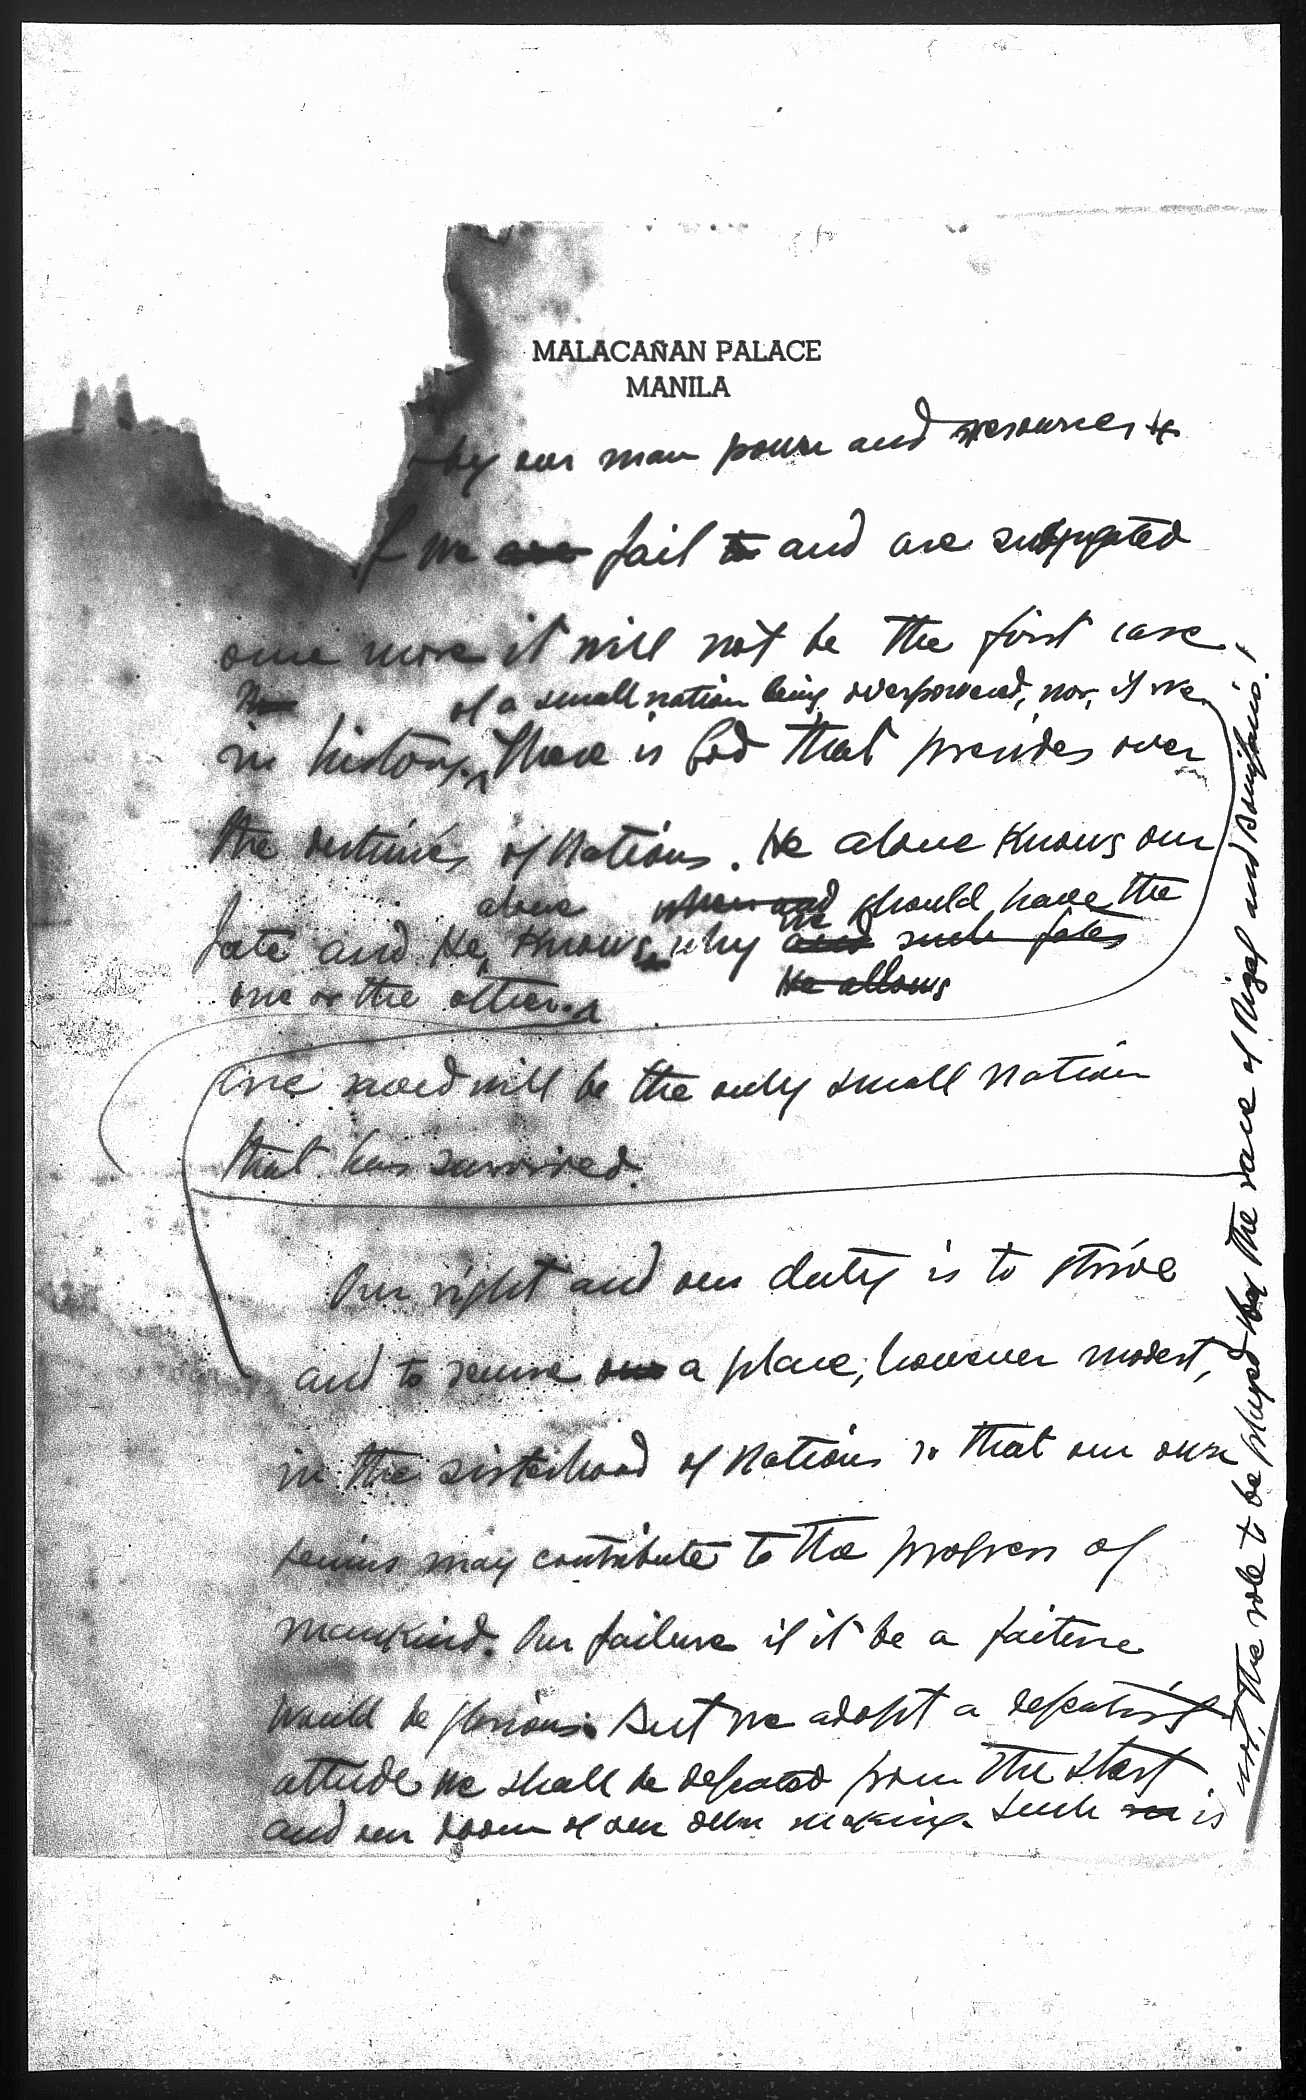 MALACAÑAN PALACE
MANILA
by our man power and resources
f we are fail to and are subjugated
once more it will not be the first case
of a small nation being overpowered, nor, if we
in history. There is God that presides over
the destinies of Nations. He alone knows our
alone when and should have the
fate and He knows why we and such fates
one or the other. He allows
are saved will be the only small nation
that has survived.
Our right and our duty is to strive
and to secure our a place, however modest,
in the sisterhood of Nations so that our own
genius may contribute to the progress of
mankind. Our failure if it be a failure
would be glorious. But we adopt a defeatist
attitude we shall be defeated from the start
and our doom of our own making. Such is
not, the role to be played by the race of Rizal and Bonifacio!